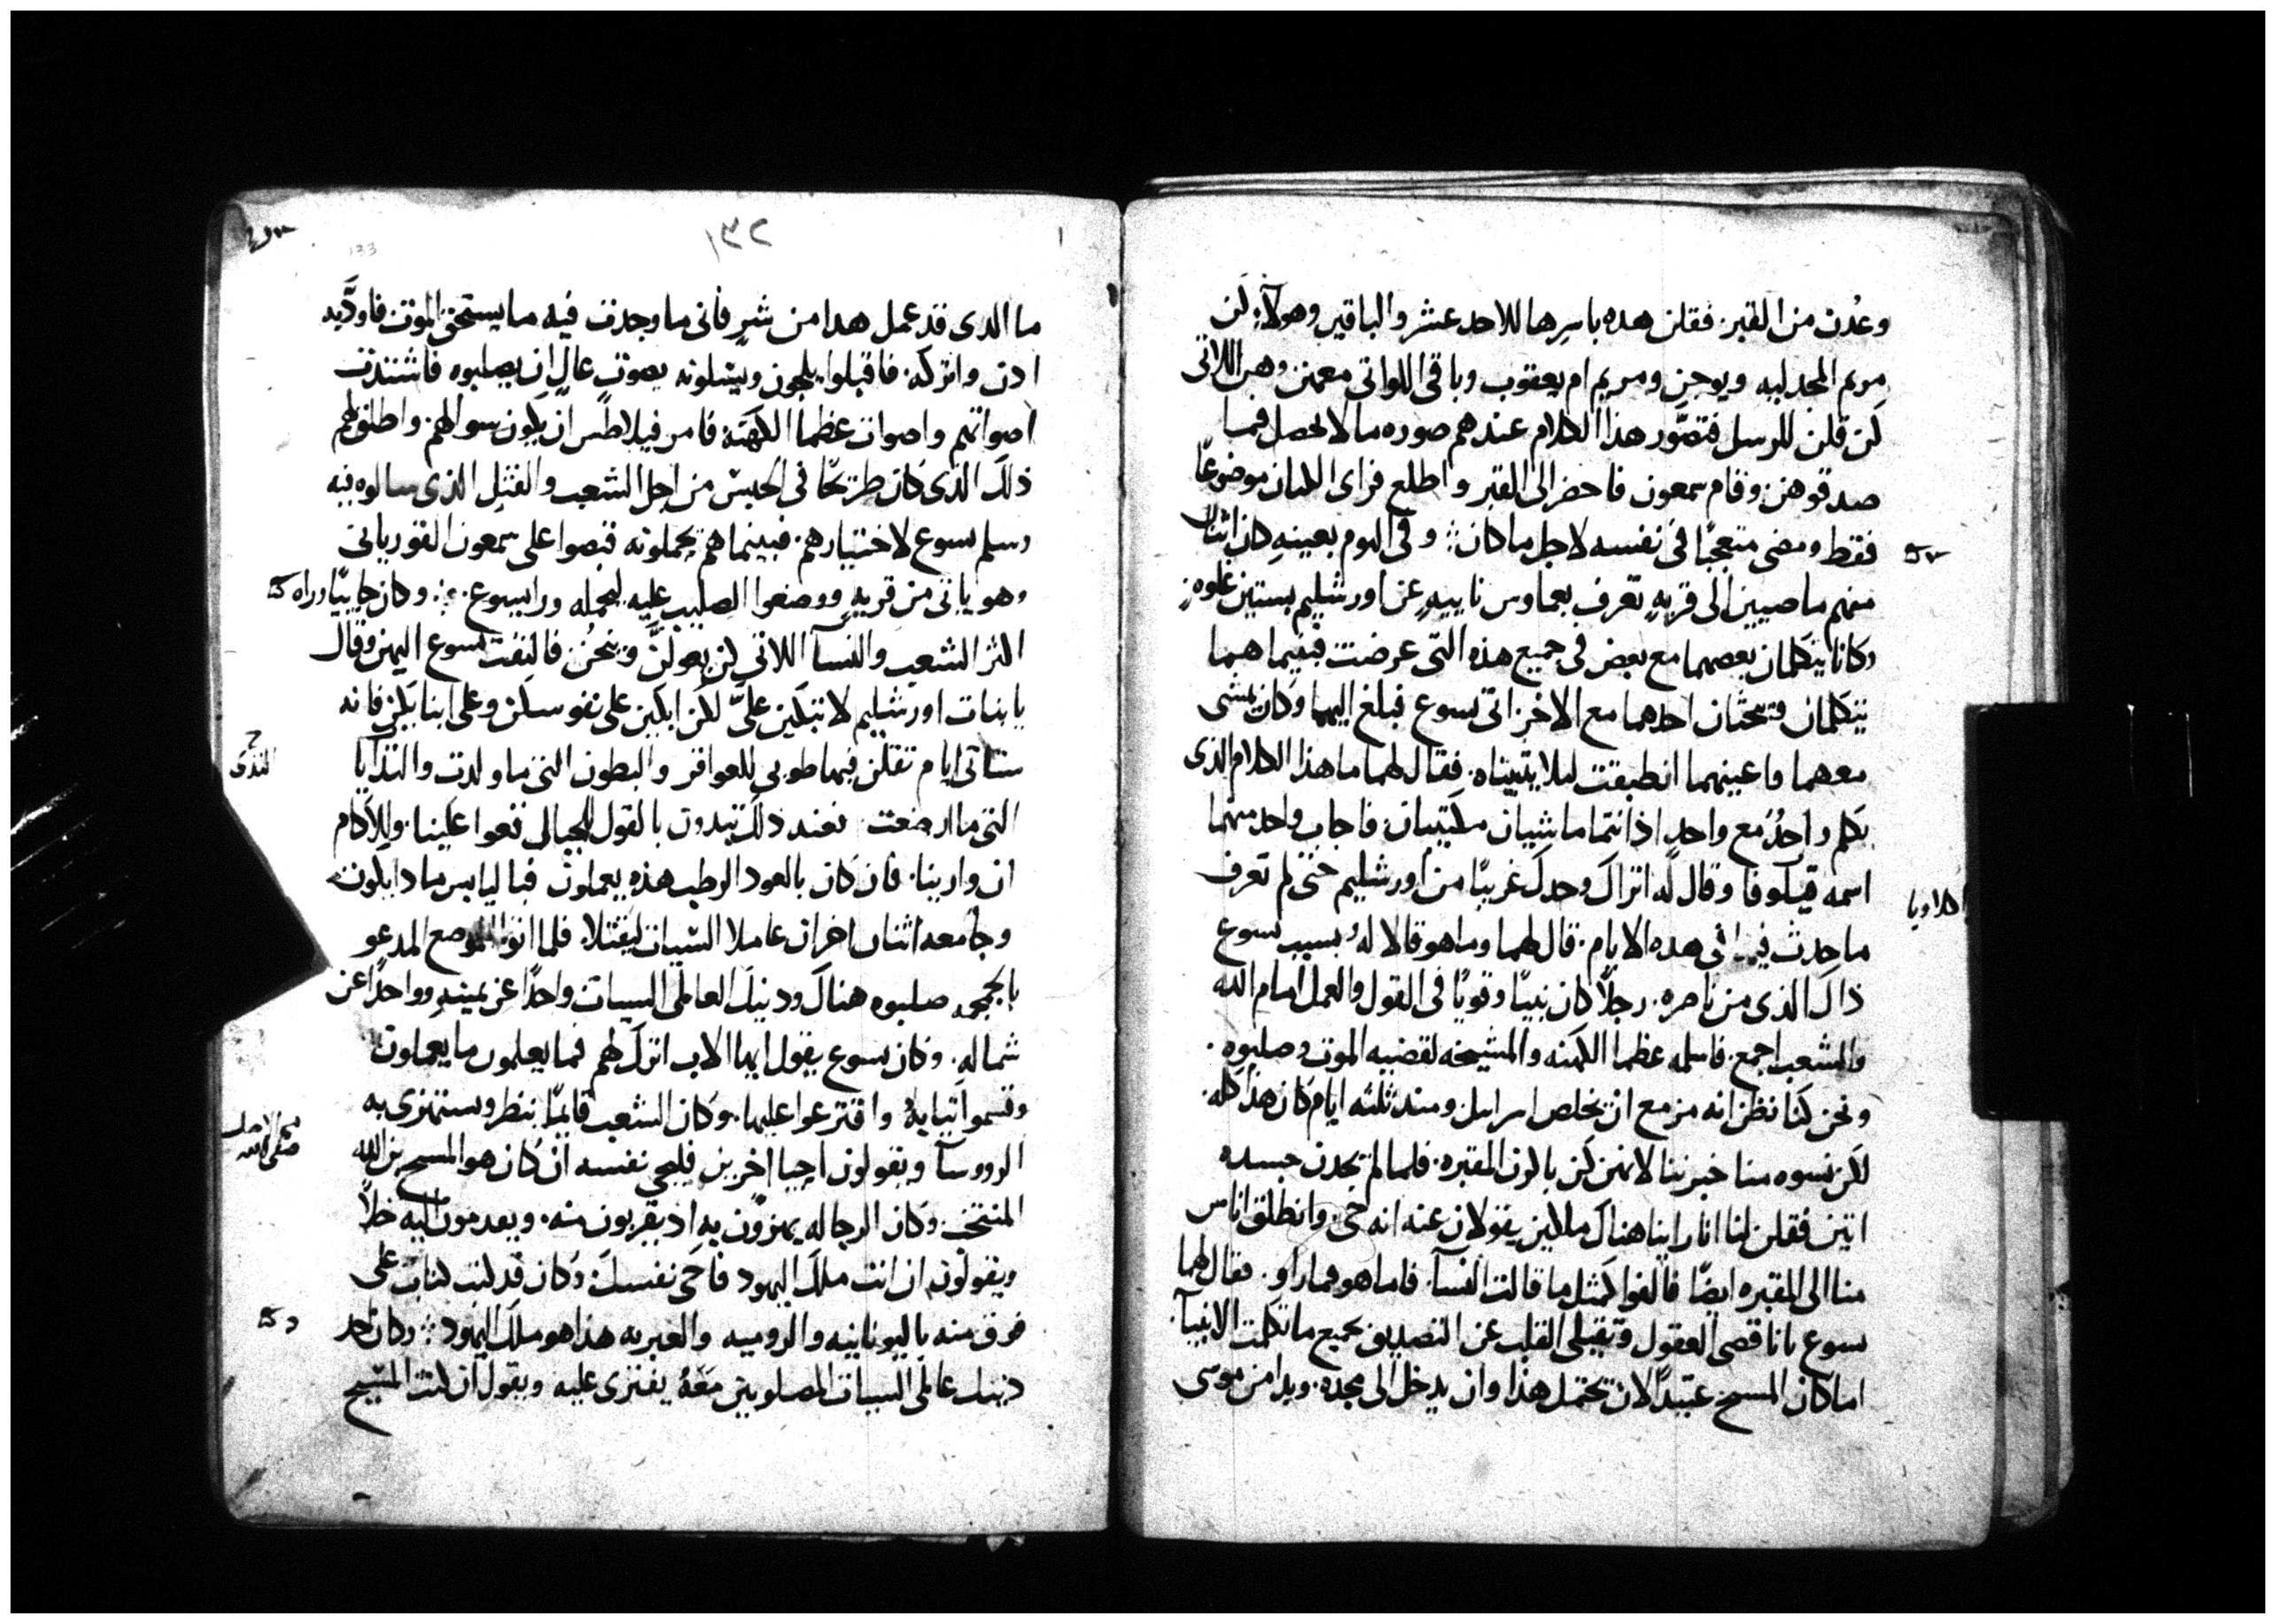 وعُدن من القبر. فقلن هده باسرها للاحد عشر والباقين وهولآء لن
مريم المجدليه ويوحن ومريم ام يعقوب وباقى اللواتى معهن وهن اللاتى
كن قلن للرسل فتصور هذا الكلام عندهم صوره ما لا يحصل فما
صدقوهن وقام سمعون فاحضر الى القبر واطلع فراى اللفان موضوعًا
فقط ومضى متعجبًا فى نفسه لاجل ما كان ⁘ وفى اليوم بعينه كان اثنان
منهم ماضيين الى قريهٍ تعرف بعماوس ناييهٍ عن اورشليم بستين غلوهٍ
وكانا يتكلمان بعضهما مع بعض فى جميع هذه التى عرضت فبينما هما
يتكلمان ويبحثان احدهما مع الاخر اتى يسوع فبلغ اليهما وكان يمشى
معهما واعينهما انطبقت ليلا يتبيناه. فقال لهما ما هذا الكلام الذى
يكلم واحدٌ مع واحدٍ اذ انتما ماشيان مكتيبان. فاجاب واحد منهما
اسمه قيلوفا وقال له اتراك وحدك غريبًا من اورشليم حتى لم تعرف
ما حدث فيها فى هده الايام. قال لهما وما هو قالا له بسبب يسوع
ذاك الذى من ناصره. رجلاً كان نبيًا وقويًا فى القول والعمل امام الله
والشعب اجمع. فاسلمه عظما الكهنه والمشيخه لقضيه الموت وصلبوه.
ونحن كنا نظن انه مزمع ان يخلص اسراييل ومند ثلثه ايام كان هذا كله.
لكن نسوه منا خبرننا لانهن كن باكرن المقبره. فلما لم يجدن جسده
اتين فقلن لنا انا راينا هناك ملاين يقولان عنه انه حى. وانطلق اناس
منا الى المقبره ايضًا فالفوا كمثل ما قالت النسآ. فاما هو فما راو. فقال لهما
يسوع يا ناقصى العقول وثقيلى القلب عن التصديق بجميع ما تكلمت الانبيآ.
اما كان المسيح عتيدًا لان يحتمل هذا وان يدخل الى مجده. وبدا من موسى
١٣٢
133
ما الدى قد عمل هدا من شرٍ فانى ما وجدت فيه ما يستحق الموت فاودّبه
ادن واتركه. فاقبلوا يلجون ويسلونه بصوتٍ عالٍ ان يصلبوه فاشتدت
اصواتهم واصوات عظما الكهنه فامر فيلاطس ان يكون سوالهم. واطلق لهم
ذلك الذى كان طريحًا فى الحبس من اجل الشعب والقتل الذى سالوه فيه
وسلم يسوع لاختيارهم. فبينما هم يحملونه قبضوا على سمعون القوريانى
وهو ياتى من قريهٍ ووضعوا الصليب عليه ليحمله ورا يسوع ⁘ وكان جاييًا وراه
اكثر الشعب والنسآ اللاتى كن يعولن وينحن فالتفت يسوع اليهن وقال
يا بنات اورشليم لا تبكين علىَّ لكن ابكين على نفوسكن وعلى ابنايكن فانه
ستاتى ايام تقلن فيها طوبى للعواقر والبطون التى ما ولدت والثدايا
الثدى
التى ما ارضعت. فعند ذلك تبدون بالقول للجبال قعوا علينا. وللآكام
ان وارينا. فان كان بالعود الرطب هذه يعملون فباليابس مادا يكون.
وجا معه اثنان اخران عاملا السيات ليقتلا. فلما اتوا الموضع المدعو
بالجمجمه صلبوه هناك ودينك العاملى السيات واحدًا عن يمينه وواحدًا عن
شماله. وكان يسوع يقول ايها الاب اترك لهم فما يعلمون ما يعملون
وقسموا ثيابه واقترعوا عليها. وكان الشعب قايمًا ينظر ويستهزى به
الرووسآ ويقولون احيا اخرين فليحى نفسه ان كان هو المسيح بن الله
المنتخب. وكان الرجاله يهزون به اد يقربون منه. ويقدمون اليه خلاً
ويقولون ان انت ملك اليهود فاحى نفسك. وكان قد كتب كتابٌ على
فوق منه باليونانيه والروميه والعبريه هذا هو ملك اليهود ⁘ وكان احد
دينك عاملى السيات المصلوبين معه يفترى عليه ويقول ان كنت المسيح